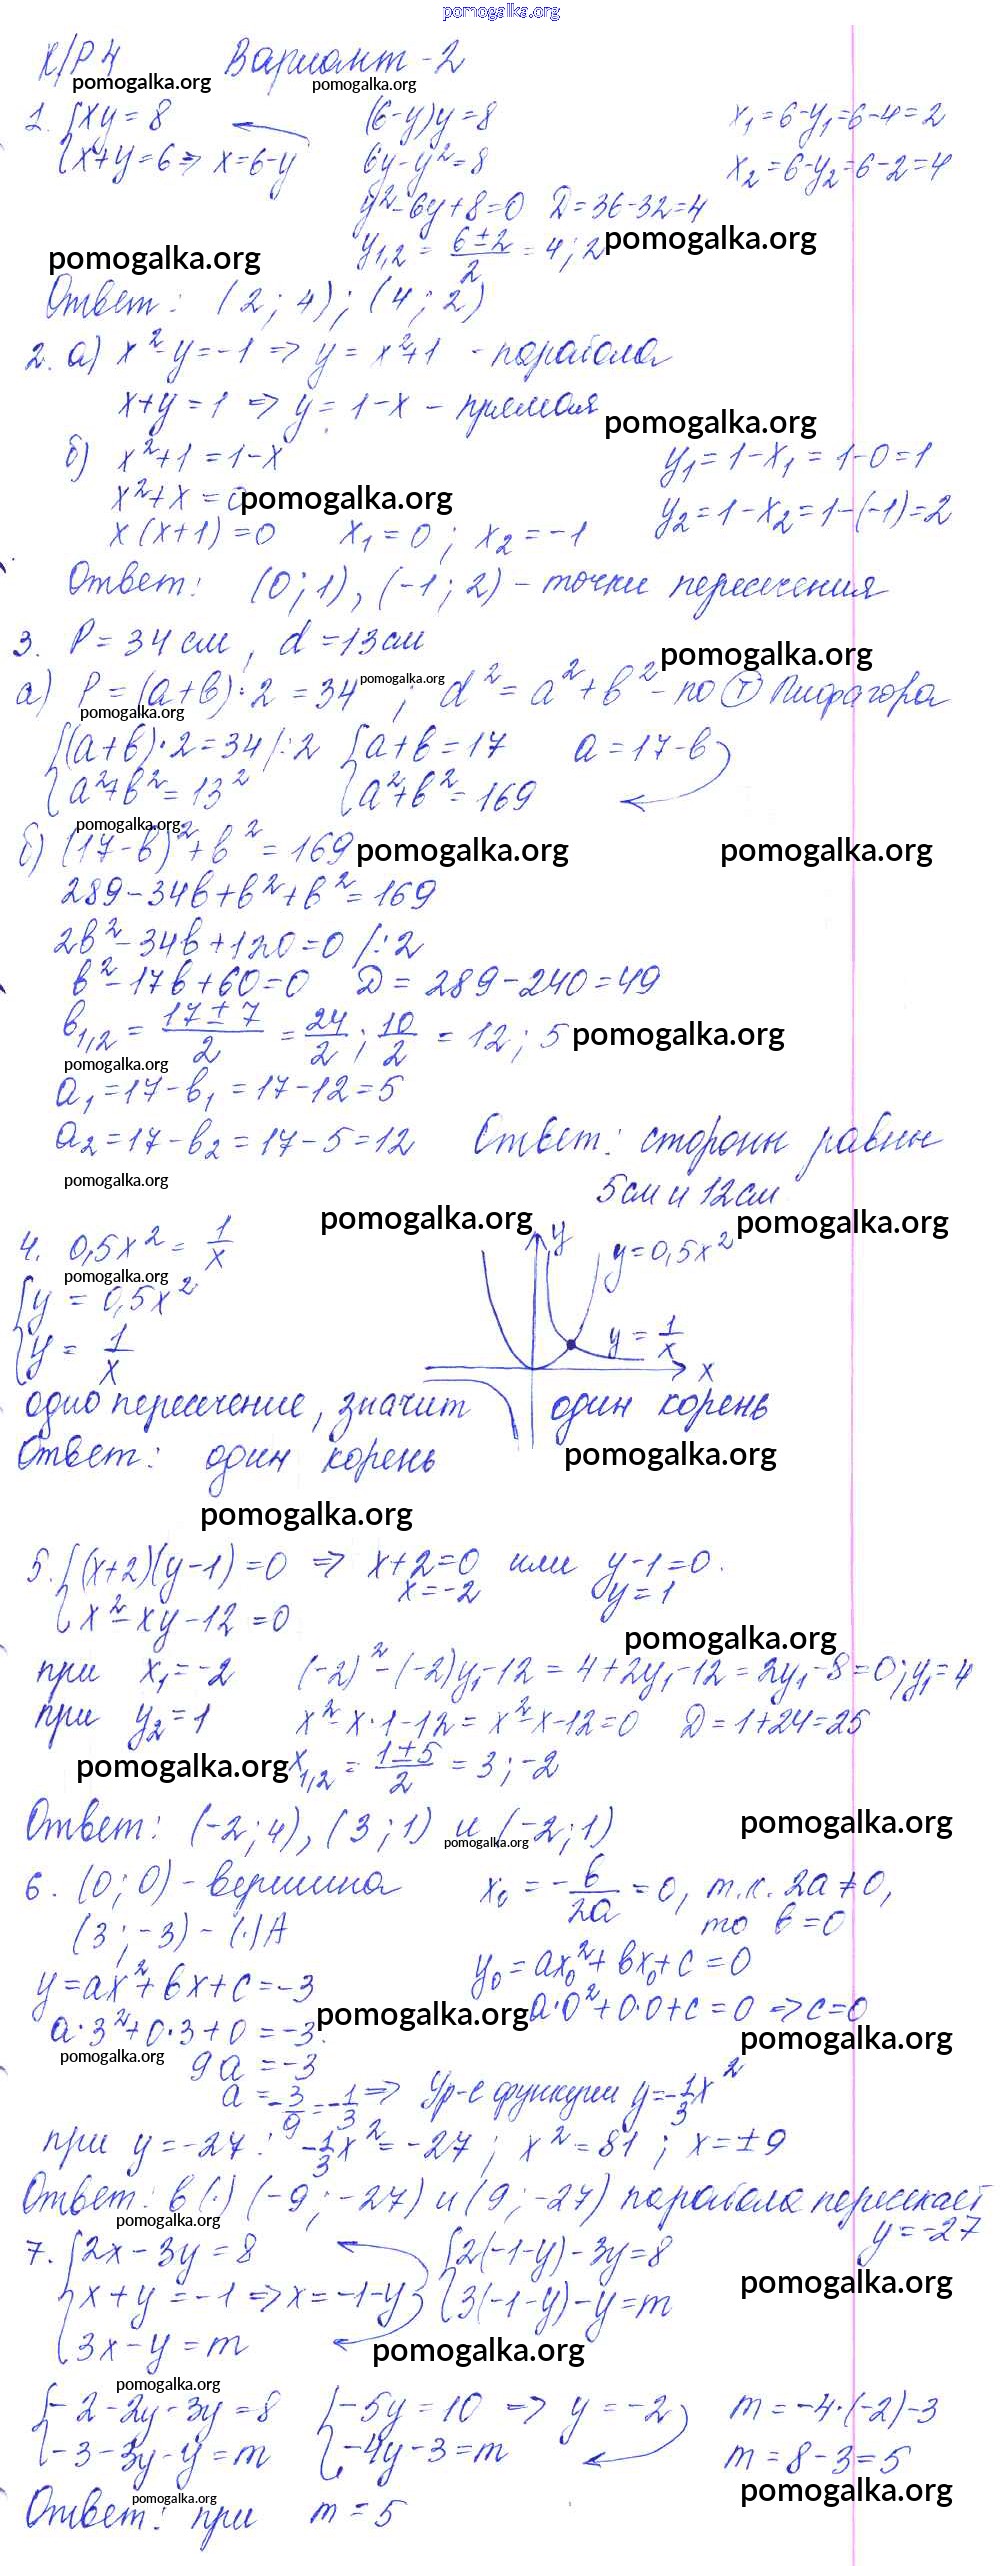 pomogalka.org
К/Р 4 Вариант-2
pomogalka.org pomogalka.org
1. {xy = 8 (6-y)y=8 x₁=6-y₁=6-4=2
{x+y=6 => x=6-y 6y-y²=8 x₂=6-y₂=6-2=4
y²-6y+8=0 D=36-32=4
y₁,₂ = (6±2)/2 = 4; 2 pomogalka.org
pomogalka.org
Ответ: (2; 4); (4; 2)
2. а) x²-y=-1 => y = x²+1 - парабола
x+y=1 => y = 1-x - прямая pomogalka.org
б) x²+1=1-x y₁=1-x₁ = 1-0=1
x²+x=0 pomogalka.org y₂=1-x₂=1-(-1)=2
x(x+1)=0 x₁=0; x₂=-1
Ответ: (0;1), (-1;2) - точки пересечения
3. P=34см, d=13см
pomogalka.org
а) P=(a+b)·2=34 pomogalka.org; d²=a²+b² - по Т Пифагора
pomogalka.org
{(a+b)·2=34 /:2 {a+b=17 a=17-b
{a²+b²=13² {a²+b²=169
pomogalka.org
б) (17-b)²+b²=169 pomogalka.org pomogalka.org
289-34b+b²+b²=169
2b²-34b+120=0 /:2
b²-17b+60=0 D=289-240=49
b₁,₂ = (17±7)/2 = 24/2; 10/2 = 12; 5 pomogalka.org
pomogalka.org
a₁=17-b₁=17-12=5
a₂=17-b₂=17-5=12 Ответ: стороны равны
pomogalka.org 5см и 12см
pomogalka.org pomogalka.org
4. 0,5x² = 1/x y y=0,5x²
pomogalka.org
{y = 0,5x²
{y = 1/x y = 1/x x
одно пересечение, значит один корень
Ответ: один корень pomogalka.org
pomogalka.org
5. {(x+2)(y-1)=0 => x+2=0 или y-1=0.
x=-2 y=1
{x²-xy-12=0
pomogalka.org
при x₁=-2 (-2)²-(-2)y₁-12=4+2y₁-12=2y₁-8=0; y₁=4
при y₂=1 x²-x·1-12=x²-x-12=0 D=1+24=25
pomogalka.org x₁,₂ = (1±5)/2 = 3; -2
Ответ: (-2;4), (3;1) и (-2;1) pomogalka.org
pomogalka.org
6. (0;0) - вершина x₀ = -b/2a = 0, т.к. 2a≠0,
то b=0
(3;-3) - (·)A
y=ax²+bx+c=-3 y₀=ax₀²+bx₀+c=0
pomogalka.org a·0²+0·0+c=0 => c=0
a·3²+0·3+0=-3. pomogalka.org
pomogalka.org 9a=-3
a=-3/9=-1/3 => Ур-е функции y=-1/3x²
при y=-27: -1/3x²=-27; x²=81; x=±9
Ответ: в (·) (-9;-27) и (9;-27) парабола пересекает
pomogalka.org y=-27
7. {2x-3y=8 {2(-1-y)-3y=8
{x+y=-1 => x=-1-y {3(-1-y)-y=m pomogalka.org
{3x-y=m pomogalka.org
pomogalka.org
{-2-2y-3y=8 {-5y=10 => y=-2 m=-4·(-2)-3
{-3-3y-y=m {-4y-3=m m=8-3=5
pomogalka.org pomogalka.org
Ответ: при m=5